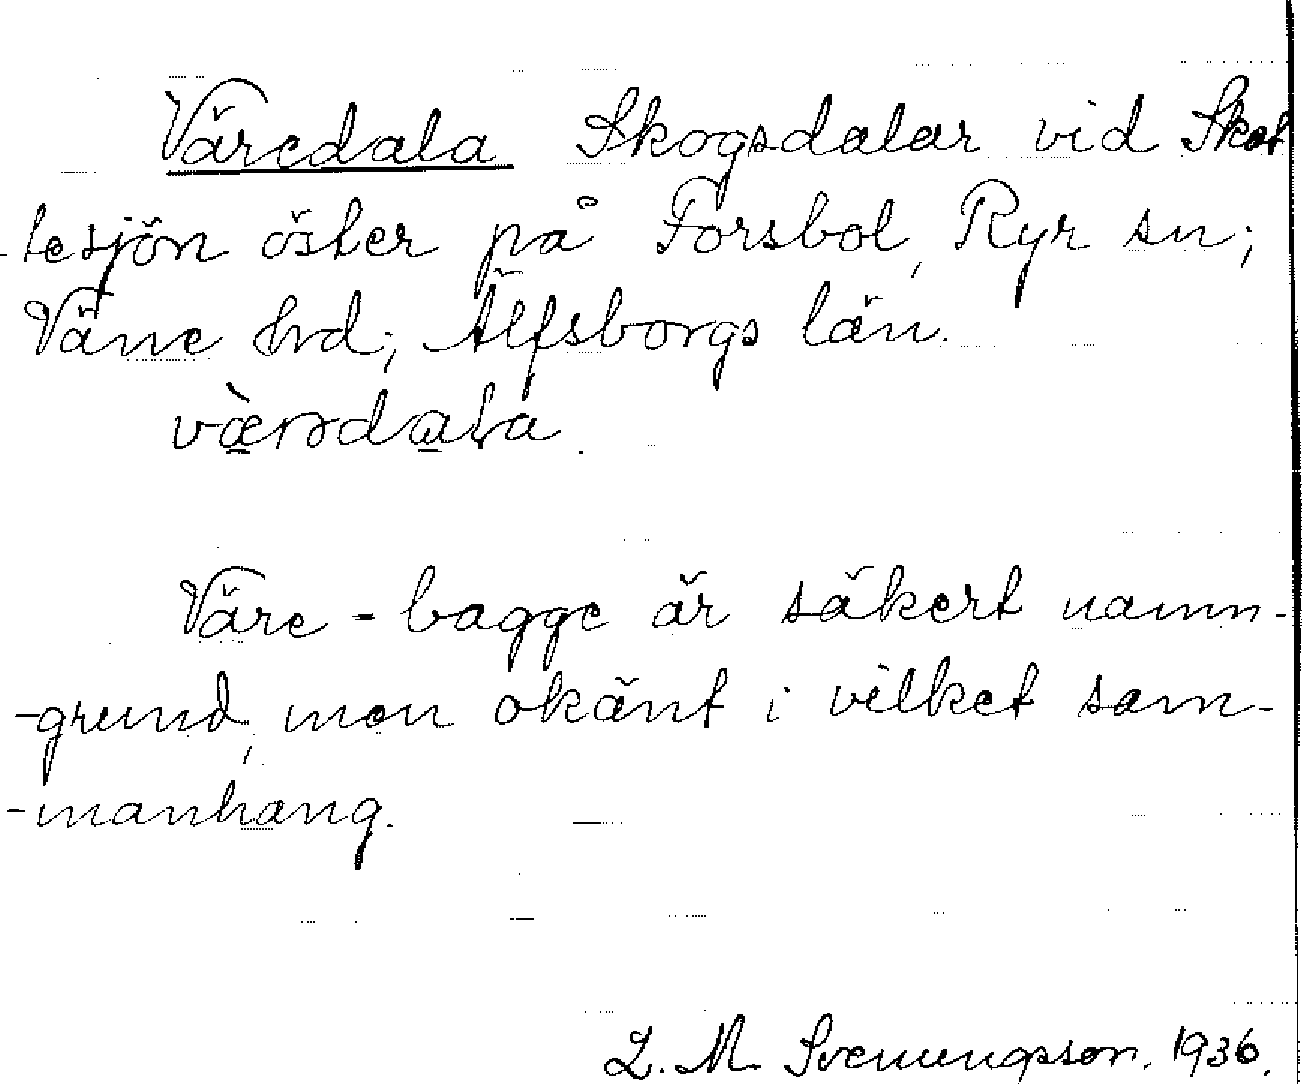 Väredala Skogsdalar vid Skot
-tesjön öster på Forsbol, Ryr sn;
Väne hrd; Älfsborgs län.
Väre - bagge är säkert namn-
-grund, men okänt i vilket sam-
-manhang.
L. M. Svenungsson. 1936.